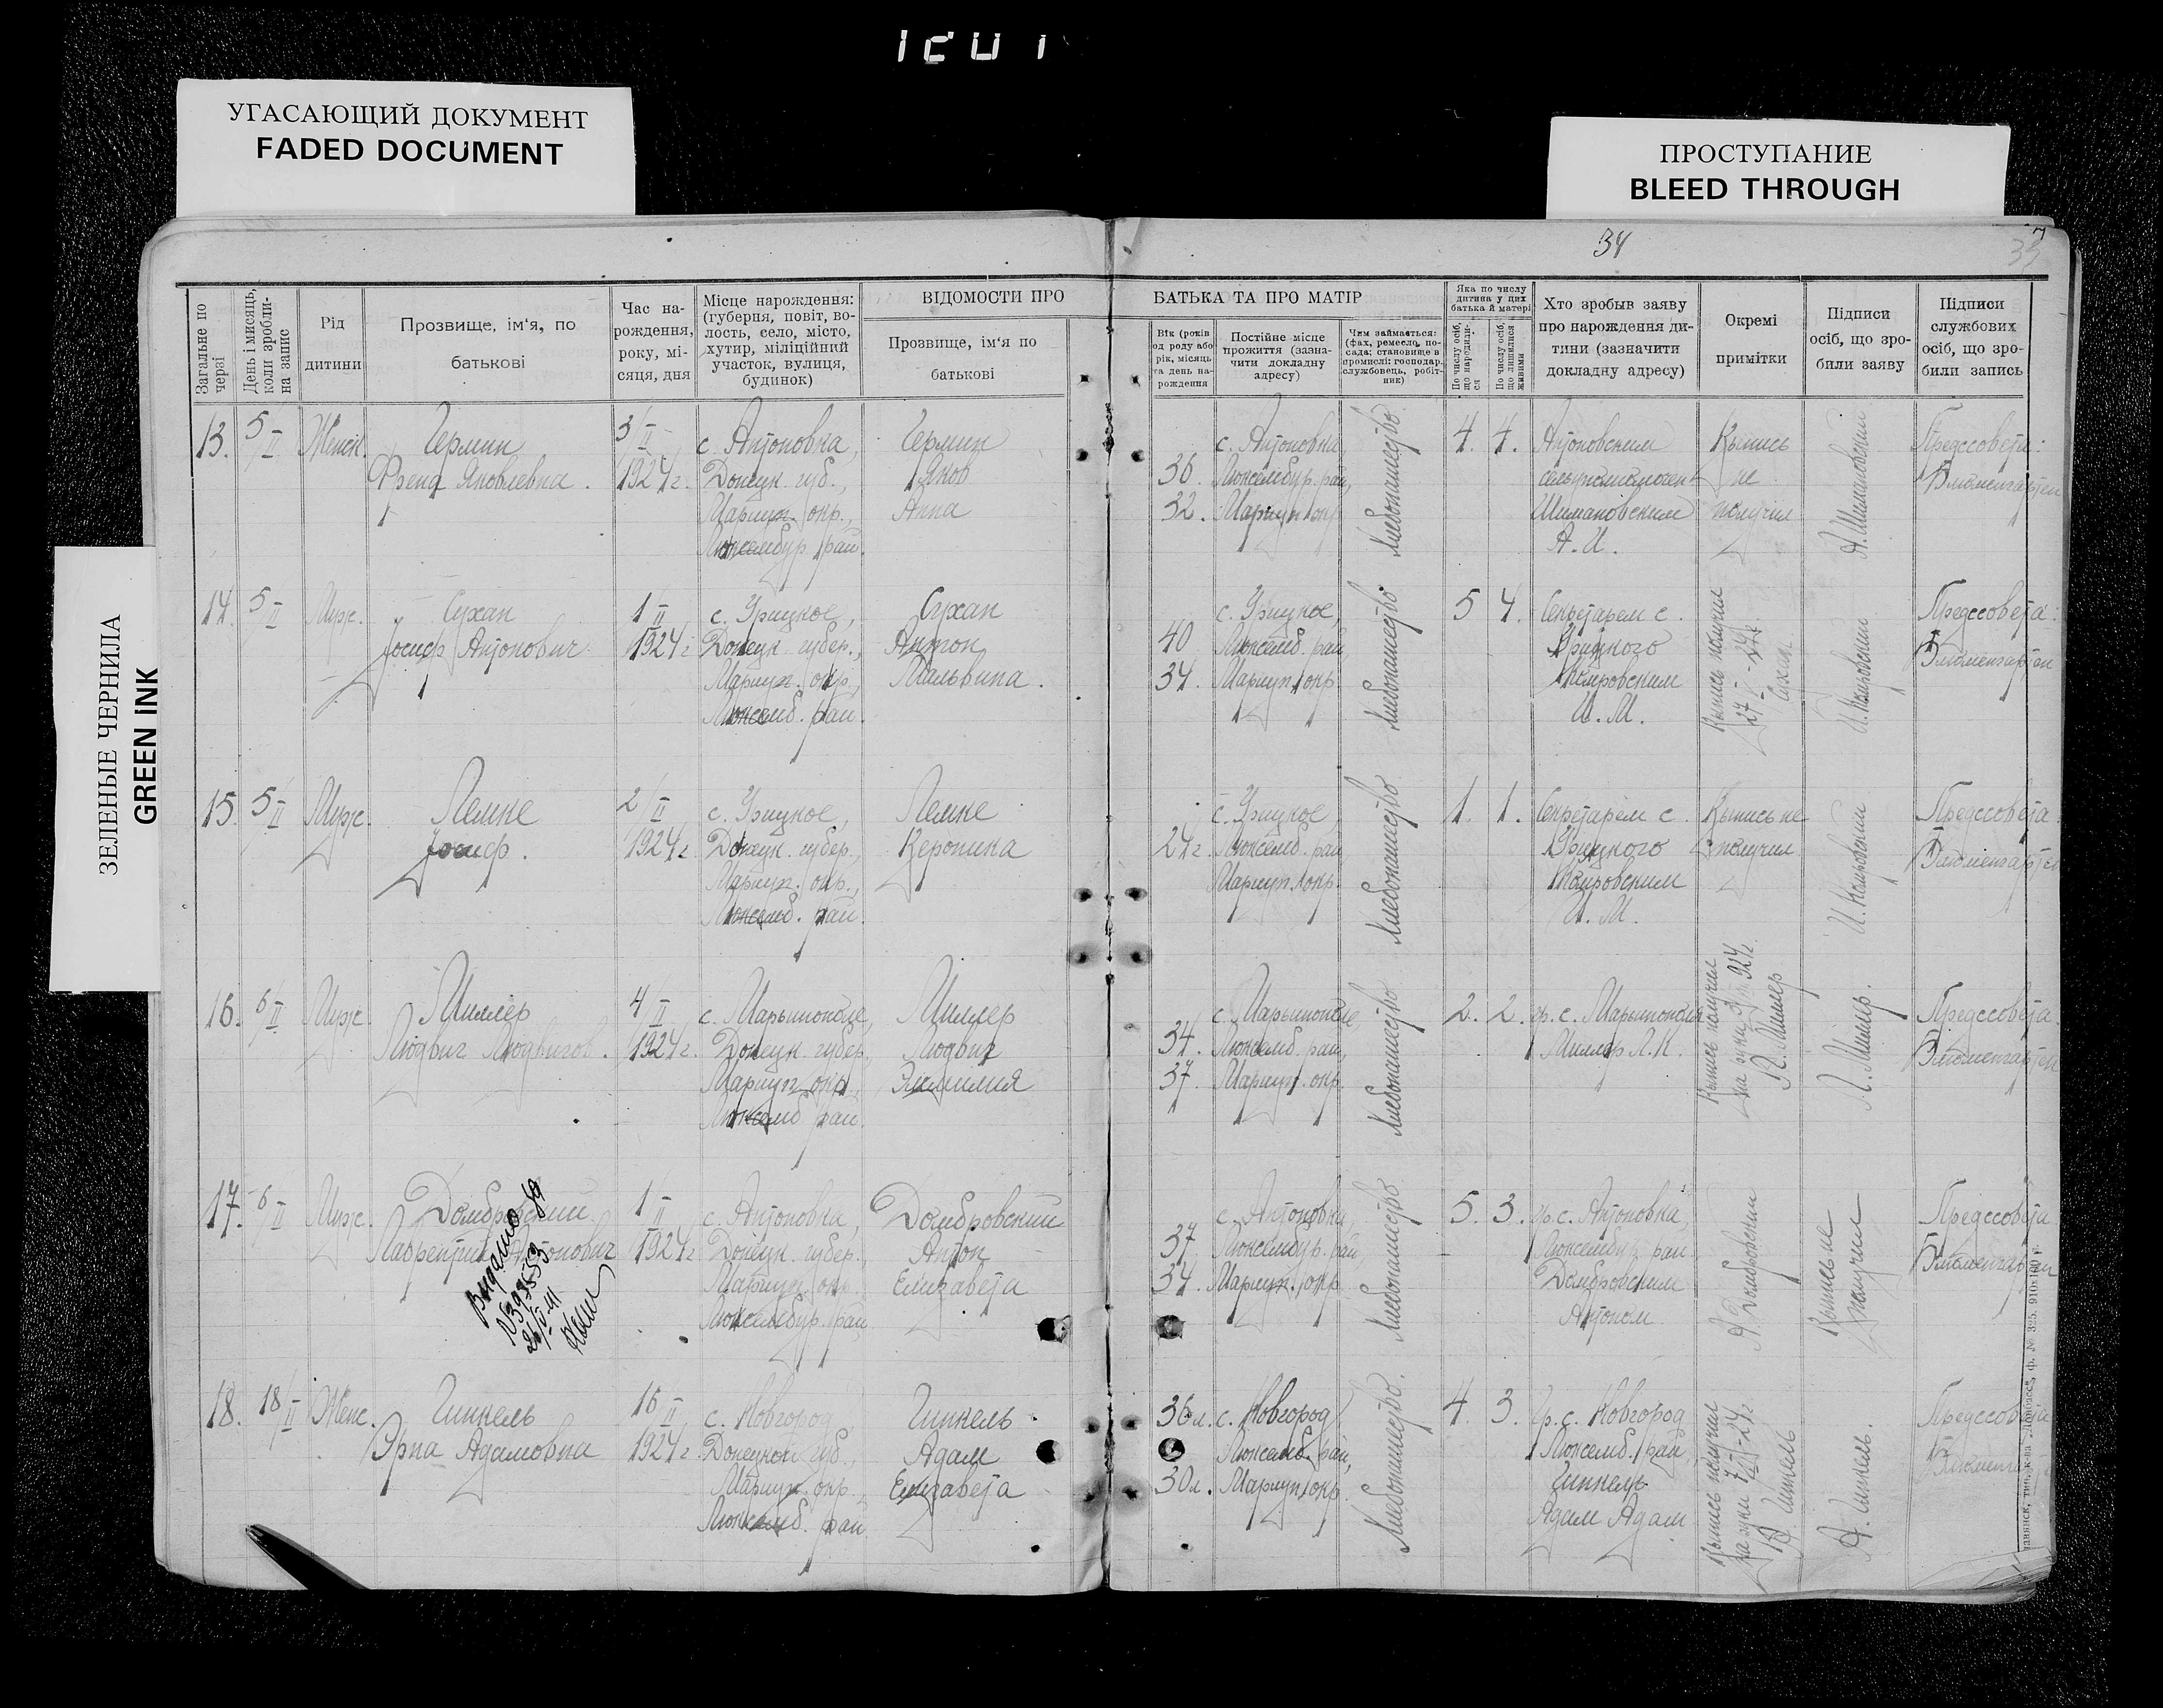 УГАСАЮЩИЙ ДОКУМЕНТ
FADED DOCUMENT
ПРОСТУПАНИЕ
BLEED THROUGH
ЗЕЛЕНЫЕ ЧЕРНИЛА
GREEN INK
34
Загальне по черзі
День і мисяць, коли зробли- на запис
Рід дитини
Прозвище, ім‘я, по батькові
Час на- рождення, року, мі- сяця, дня
Місце нарождення: (губерня, повіт, во- лость, село, місто, хутир, міліційний участок, вулиця, будинок)
ВІДОМОСТИ ПРО БАТЬКА ТА ПРО МАТІР
Прозвище, ім‘я по батькові
Вік (років од роду або рік, місяць та день на- рождення
Постійне місце прожиття (зазна- чити докладну адресу)
Чим займається: (фах, ремесло, по- сада; становище в промислі: господар, службовець, робіт- ник)
Яка по числу дитина у цих батька й матері
По числу осіб, що народили- ся
По числу осіб, що лишилися живими
Хто зробыв заяву про нарождення ди- тини (зазначити докладну адресу)
Окремі примітки
Підписи осіб, що зро- били заяву
Підписи службових осіб, що зро- били запись
13. 5/II Женск. Гермин 3/II с. Антоновка, Гермин с. Антоновка, Хлебопашество 4. 4. Антоновским Выпись А. Шимановский Предссовета:
Яковлевна. 1924 г. Донецк. губ., Яков 36. Люксембур. рай, не Блюменгартен
Мариуп. окр., Анна 32. Мариуп. окр. Шимановским получил
Люксембур. рай. А. И.
14. 5/II Муж. Сухан 1/II с. Урицкое, Сухан с. Урицкое, Хлебопашество 5 4. Секретарем с. Выпись получил Предссовета:
Иосиф Антонович 1924 г. Донецк. губер., Антон 40 Люксемб. рай, Урицкого Блюменгартен
Мариуп. окр., Мальвина. 34. Мариуп. окр. Сухан
Люксемб. рай. И. М.
15. 5/II Муж. Лемке 2/II с. Урицкое, Лемке с. Урицкое Хлебопашество 1. 1. Секретарем с. Выпись не Предссовета:
Иосиф. 1924 г. Донецк. губер., Вероника 24 г. Люксемб. рай Урицкого получил Блюменгартен
Мариуп. окр., Мариуп. окр.
Люксемб. рай. И. М.
16. 6/II Муж. Миллер 4/II с. Марьинополе, Миллер с. Марьинополе Хлебопашество 2. 2. гр. с. Марьинополя Выпись получил Л. Миллер. Предссовета
Людвиг Людвигов. 1924 г. Донецк. губер. Людвиг 34. Люксемб. рай, Миллер Л. К. на руки 924 г. Блюменгартен
Мариуп. окр., Эмилия 37. Мариуп. окр. Л. Миллер
Люксемб. рай.
17. 6/II Муж. Домбровский 1/II с. Антоновка, Домбровский с. Антоновка, Хлебопашество 5. 3. гр. с. Антоновка, А. Домбровский Выпись не получил Предссовета
Лаврентий Антонович 1924 г. Донецк. губер., Антон 37 Люксембур. рай Люксембур. рай. Блюменгартен
Мариуп. окр. Елизавета 34. Мариуп. окр. Домбровским
Люксембур. рай. Антоном
18. 18/II Женс. Гинкель 16/II с. Новгород Гинкель 36 л. с. Новгород Хлебопашество. 4. 3. Гр. с. Новгород Выпись получил А. Гинкель. Предссовета
Эрна Адамовна 1924 г. Донецкой губ., Адам Люксемб. рай, Люксемб. рай,
Мариуп. окр. Елизавета 30 л. Мариуп. окр. Гинкель
Люксемб. рай. Адам Адам